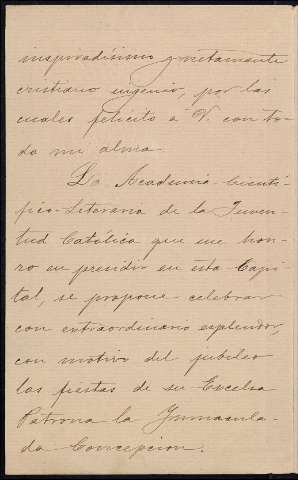 inspiradísimo y netamente
cristiano ingenio, por las
cuales felicito á V. con to-
da mi alma.
La Academia Cientí-
fico-Literaria de la Juven-
tud Católica que me hon-
ro en presidir en esta Capi-
tal, se propone celebrar
con extraordinario esplendor,
con motivo del jubileo
las fiestas de su Excelsa
Patrona la Inmacula-
da Concepcion.